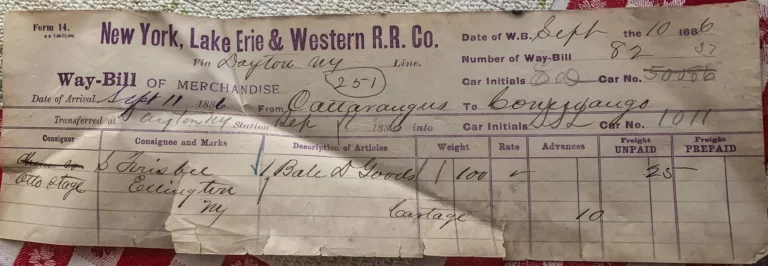 Form 14.
New York, Lake Erie & Western R.R. Co.
Date of W.B. Sept the 10 1886
Via Dayton NY Line.
Number of Way-Bill 82 57
251
Way-Bill OF MERCHANDISE
Car Initials Car No. 50086
Date of Arrival Sept 11 1886 From Cattaraugus To Conewango
Transferred at Dayton NY Station Sep 11 1886 into Car Initials Car No. 1011
Consigner Consignee and Marks Description of Articles Weight Rate Advances Freight UNPAID Freight PREPAID
Otto Stage S Frisbee 1 Bale D Goods 100 25
Ellington
NY Cartage 10